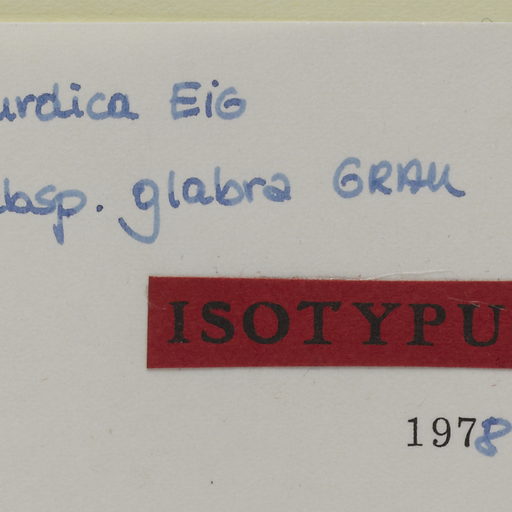 urdica Eig
bsp. glabra GRAU
ISOTYPU
1978